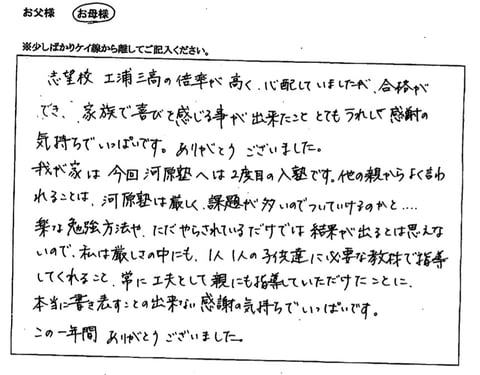 お父様 お母様
※少しばかりケイ線から離してご記入ください。
志望校 土浦三高の倍率が高く、心配していましたが、合格が
でき、家族で喜びを感じる事が出来たこと とてもうれしく感謝の
気持ちでいっぱいです。ありがとうございました。
我が家は今回河原塾へは2度目の入塾です。他の親からよく言わ
れることは、河原塾は厳しく、課題が多いのでついていけるのかと……
楽な勉強方法や、ただやらされているだけでは結果が出るとは思えな
いので、私は厳しさの中にも、1人1人の子供達に必要な教材で指導
してくれること、常に工夫して親にも指導していただけたことに、
本当に書き表すことの出来ない感謝の気持ちでいっぱいです。
この一年間 ありがとうございました。